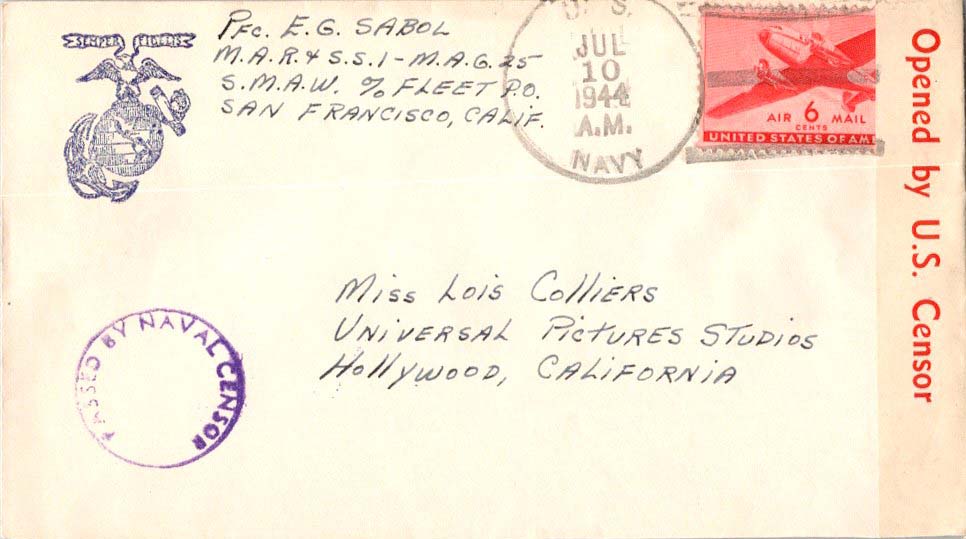 SEMPER FIDELIS
Pfc. E.G. SABOL
M.A.R. & S.S.1 - M.A.G. 25
S.M.A.W. % FLEET P.O.
SAN FRANCISCO, CALIF.
U. S.
JUL
10
1944
A.M.
NAVY
AIR 6 MAIL
CENTS
UNITED STATES OF AM
Opened by U.S. Censor
Miss Lois Colliers
Universal Pictures Studios
Hollywood, California
PASSED BY NAVAL CENSOR